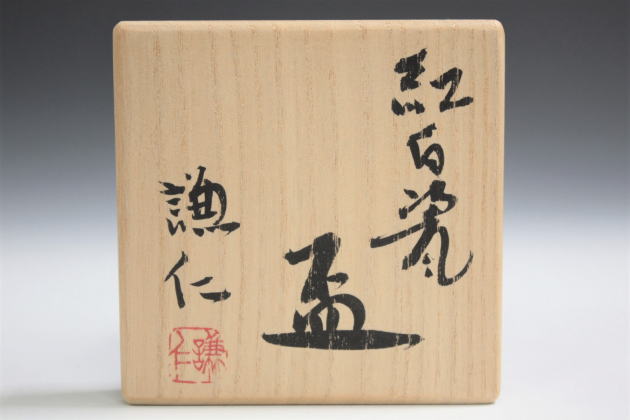 紅白瓷
盃
謙仁
謙仁